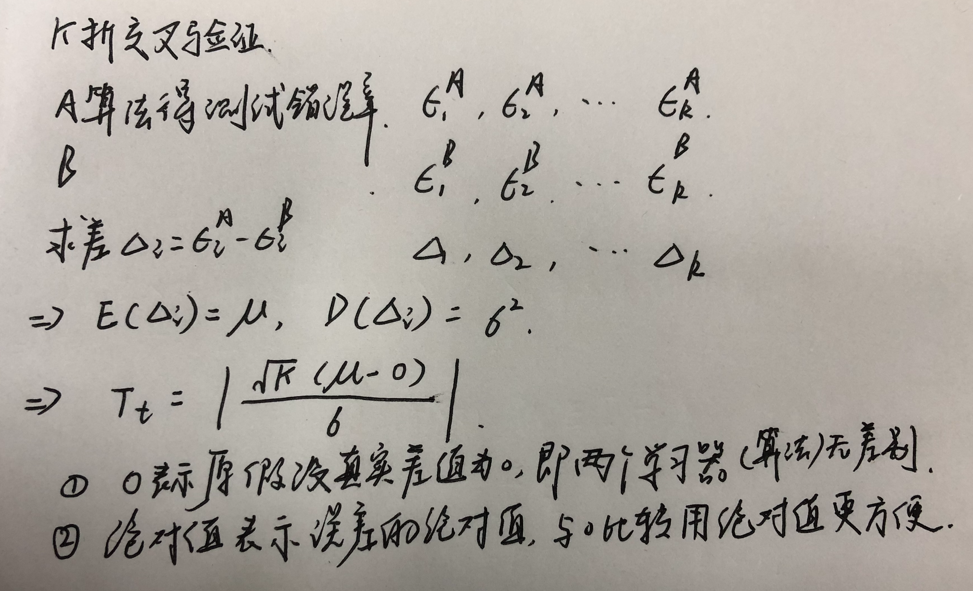 K折交叉验证.
A算法得测试错误率. ϵ₁ᴬ, ϵ₂ᴬ, ··· ϵₖᴬ.
B . ϵ₁ᴮ, ϵ₂ᴮ, ··· ϵₖᴮ.
求差 Δᵢ=ϵᵢᴬ-ϵᵢᴮ Δ₁, Δ₂, ··· Δₖ
=> E(Δᵢ)=μ, D(Δᵢ)=σ².
=> Tₜ = | √K (μ-0) / σ |.
① 0表示原假设真实差值为0, 即两个学习器(算法)无差别.
② 绝对值表示误差的绝对值, 与0比较用绝对值更方便.